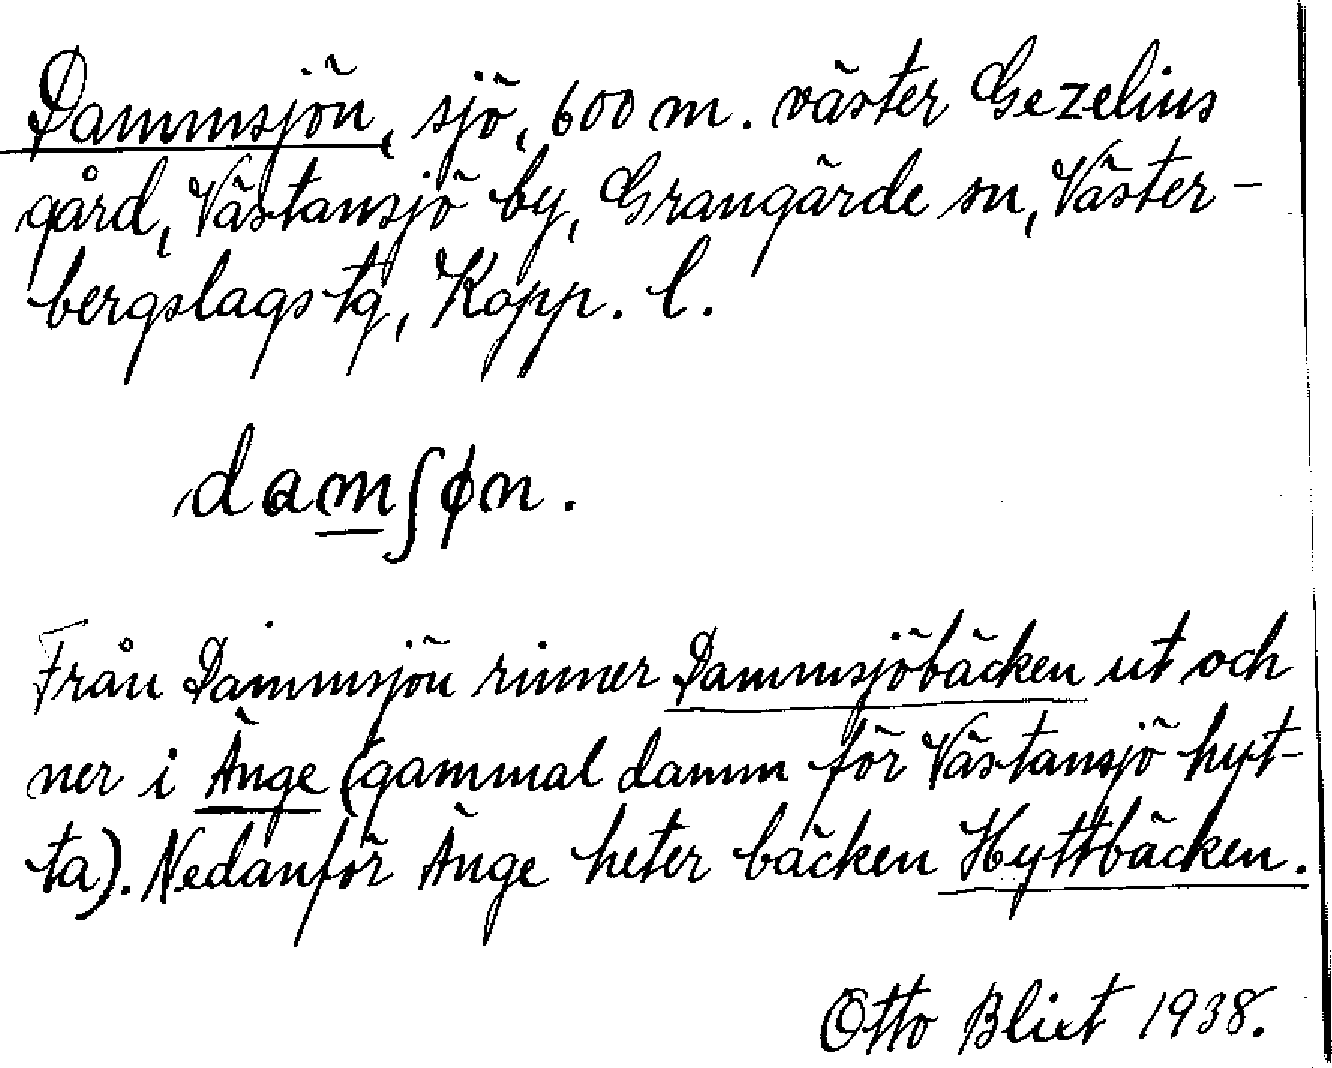 Dammsjön, sjö, 600 m. väster Gezelius
gård, Västansjö by, Grangärde sn, Väster-
bergslags tg, Kopp. l.
damʃøn.
Från Dammsjön rinner Dammsjöbäcken ut och
ner i Änge (gammal damm för Västansjö hyt-
ta). Nedanför Änge heter bäcken Hyttbäcken.
Otto Blixt 1938.